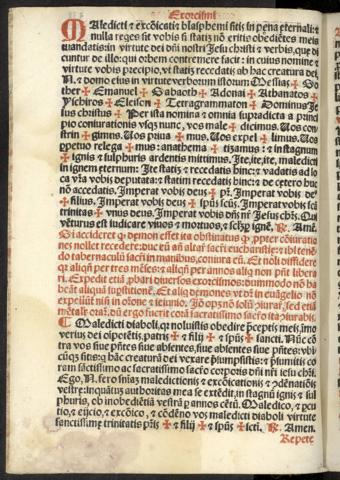 Exorcismi
Maledicti & excōicati: blasphemi sitis in pena eternali: &
nulla reges sit vobis si statiz nō eritis obediētes meis
mandatis: in virtute dei dn̄i nostri Jesu christi & verbis, que di
cuntur de illo: qui orbem contremere facit: in cuius nomine &
virtute vobis precipio, vt statiz recedatis ab hac creatura dei.
N. & domo eius in virtute verborum istorum Messias ✠ So
ther ✠ Emanuel ✠ Sabaoth ✠ Adonai ✠ Athanatos ✠
Yschiros ✠ Eleison ✠ Tetragrammaton ✠ Dominus Je
sus christus ✠ Per ista nomina & omnia supradicta a princi
pio coniurationis vsqz nunc, vos male ✠ dicimus. Uos con
strin ✠ gimus. Uos priua ✠ mus. Uos expel ✠ limus. Uos
ppetuo relega ✠ mus: anathema ✠ tizamus: & in stagnum
✠ ignis & sulphuris ardentis mittimus. Ite, ite, ite, maledicti
in ignem eternum: Ite statiz & recedatis hinc: & vadatis ad lo
ca vr̄a vobis deputata: & statim recedatis hinc: & de cetero huc
nō accedatis. Imperat vobis deus ✠ pr̄. Imperat vobis de⁹
✠ filius. Imperat vobis deus ✠ spūs scūs. Imperat vobis scā
trinitas ✠ vnus deus. Imperat vobis dn̄s nr̄ Jesus chr̄s. Qui
vēturus est iudicare viuos & mortuos, & sclm̄ ignē. ℟. Amē.
Si accideret q demon esset ita obstinatus q ppter cōiuratio
nes nollet recedere: duc eū an̄ altar̄ sacri̅ eucharistie: & ibi tenē
do tabernaculū sacrī in manibus, coniura eū. Et noli diffidere
q aliqn̄ per tres mēses: & aliqn̄ per annos aliq non pn̄t libera
ri. Expedit etiā pbari diuersos exorcismos: dummodo nō ha
beāt aliquā suspitionē. Et aliq demones vt dr̄ in euāgelio nō
expelliūt nisi in orōne & ieiunio. Iō opz nō solū iurar̄, sed etiā
mētalr̄ orar̄. dū ergo fuerit corā sacratissimo sacrō ita piurabis.
❡ Maledicti diaboli, qr noluistis obedire pceptis meis, imo
verius dei oīpotētis, patris ✠ & filij ✠ & spūs ✠ sancti. Nūc cō
tra vos siue pn̄tes & siue absentes, siue absentes siue pn̄tes: vbi
cūqz sitis: qz hāc creaturā dei vexare psumpsistis: & psumitis co
ram sāctissimo ac sacratissimo sacrō corporis dn̄i nr̄i iesu chr̄i.
Ego, N. fero sn̄ias maledictionis & excōicationis & 2dēnatiōis
vestre: inquātuz authoritas mea se extēdit, in stagnū ignis & sul
phuris, ob inobediētiā vestrā p annos cētū. Maledico, & pcu
tio, & eijcio, & excōico, & cōdēno vos maledicti diaboli virtute
sanctissime trinitatis prīs ✠ & filij ✠ & spūs ✠ scti. ℟. Amen.
Repete